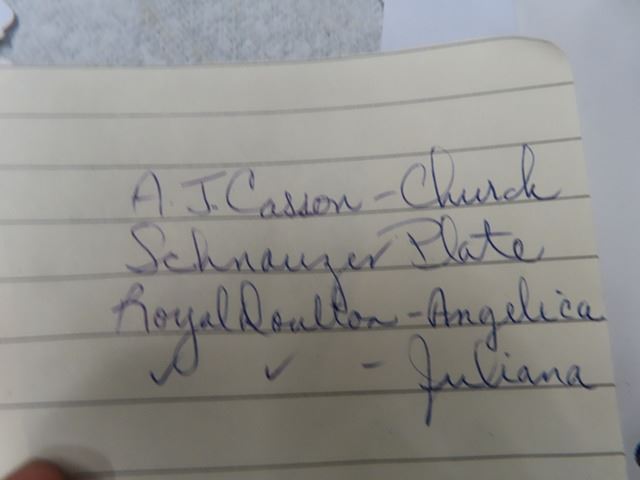 A. J. Casson - Church
Schnauzer Plate
Royal Doulton - Angelica
✓ ✓ - Juliana